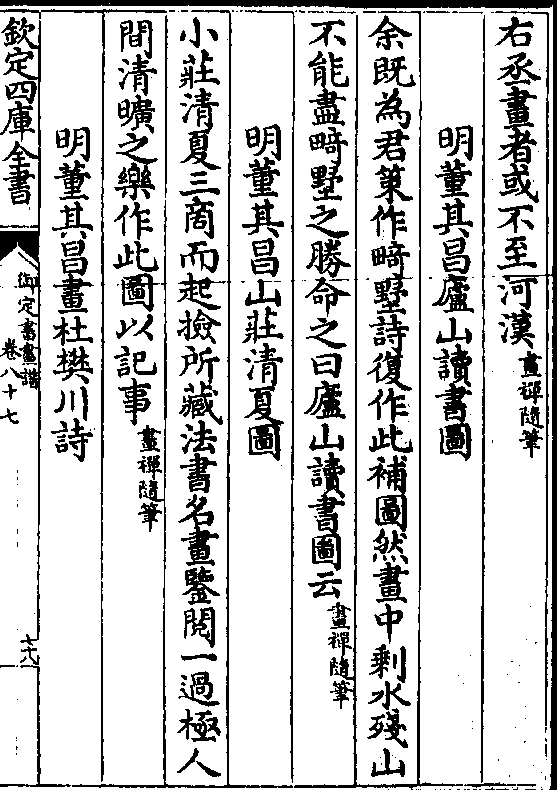 右丞畫者或不至河漢畫禪隨筆
明董其昌廬山讀書圖
余既為君策作畸墅詩復作此補圖然畫中剩水殘山
不能盡畸墅之勝命之曰廬山讀書圖云畫禪隨筆
明董其昌山莊清夏圖
小莊清夏三商而起撿所藏法書名畫鑒閱一過極人
間清曠之樂作此圖以記事畫禪隨筆
明董其昌畫杜樊川詩
欽定四庫全書
御定書畫譜
卷八十七